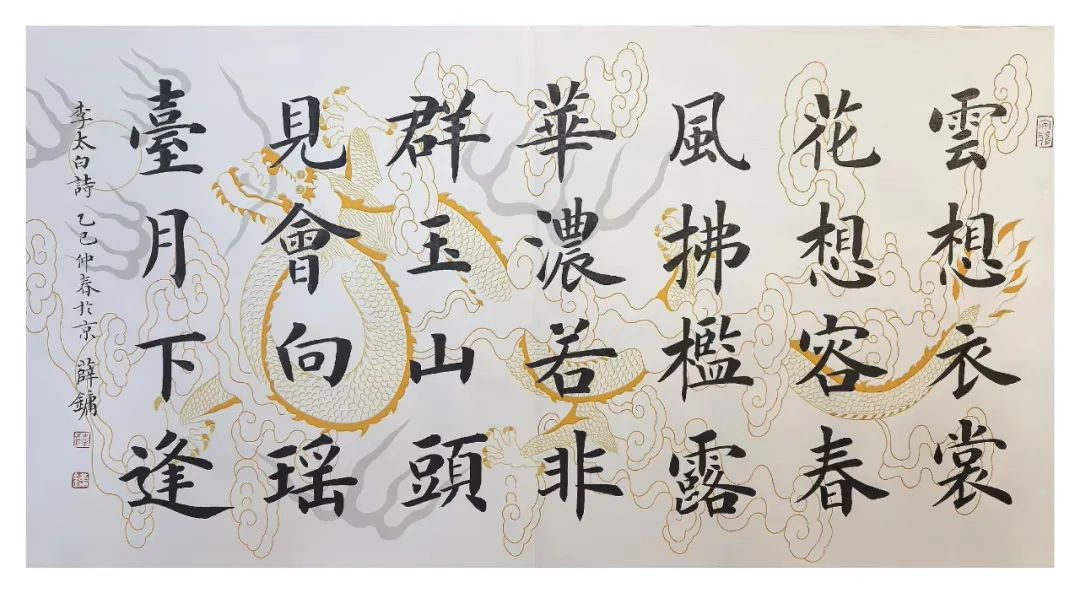 雲想衣裳
花想容春
風拂檻露
華濃若非
群玉山頭
見會向瑶
臺月下逢
李太白詩 乙巳仲春於京 薛鏞